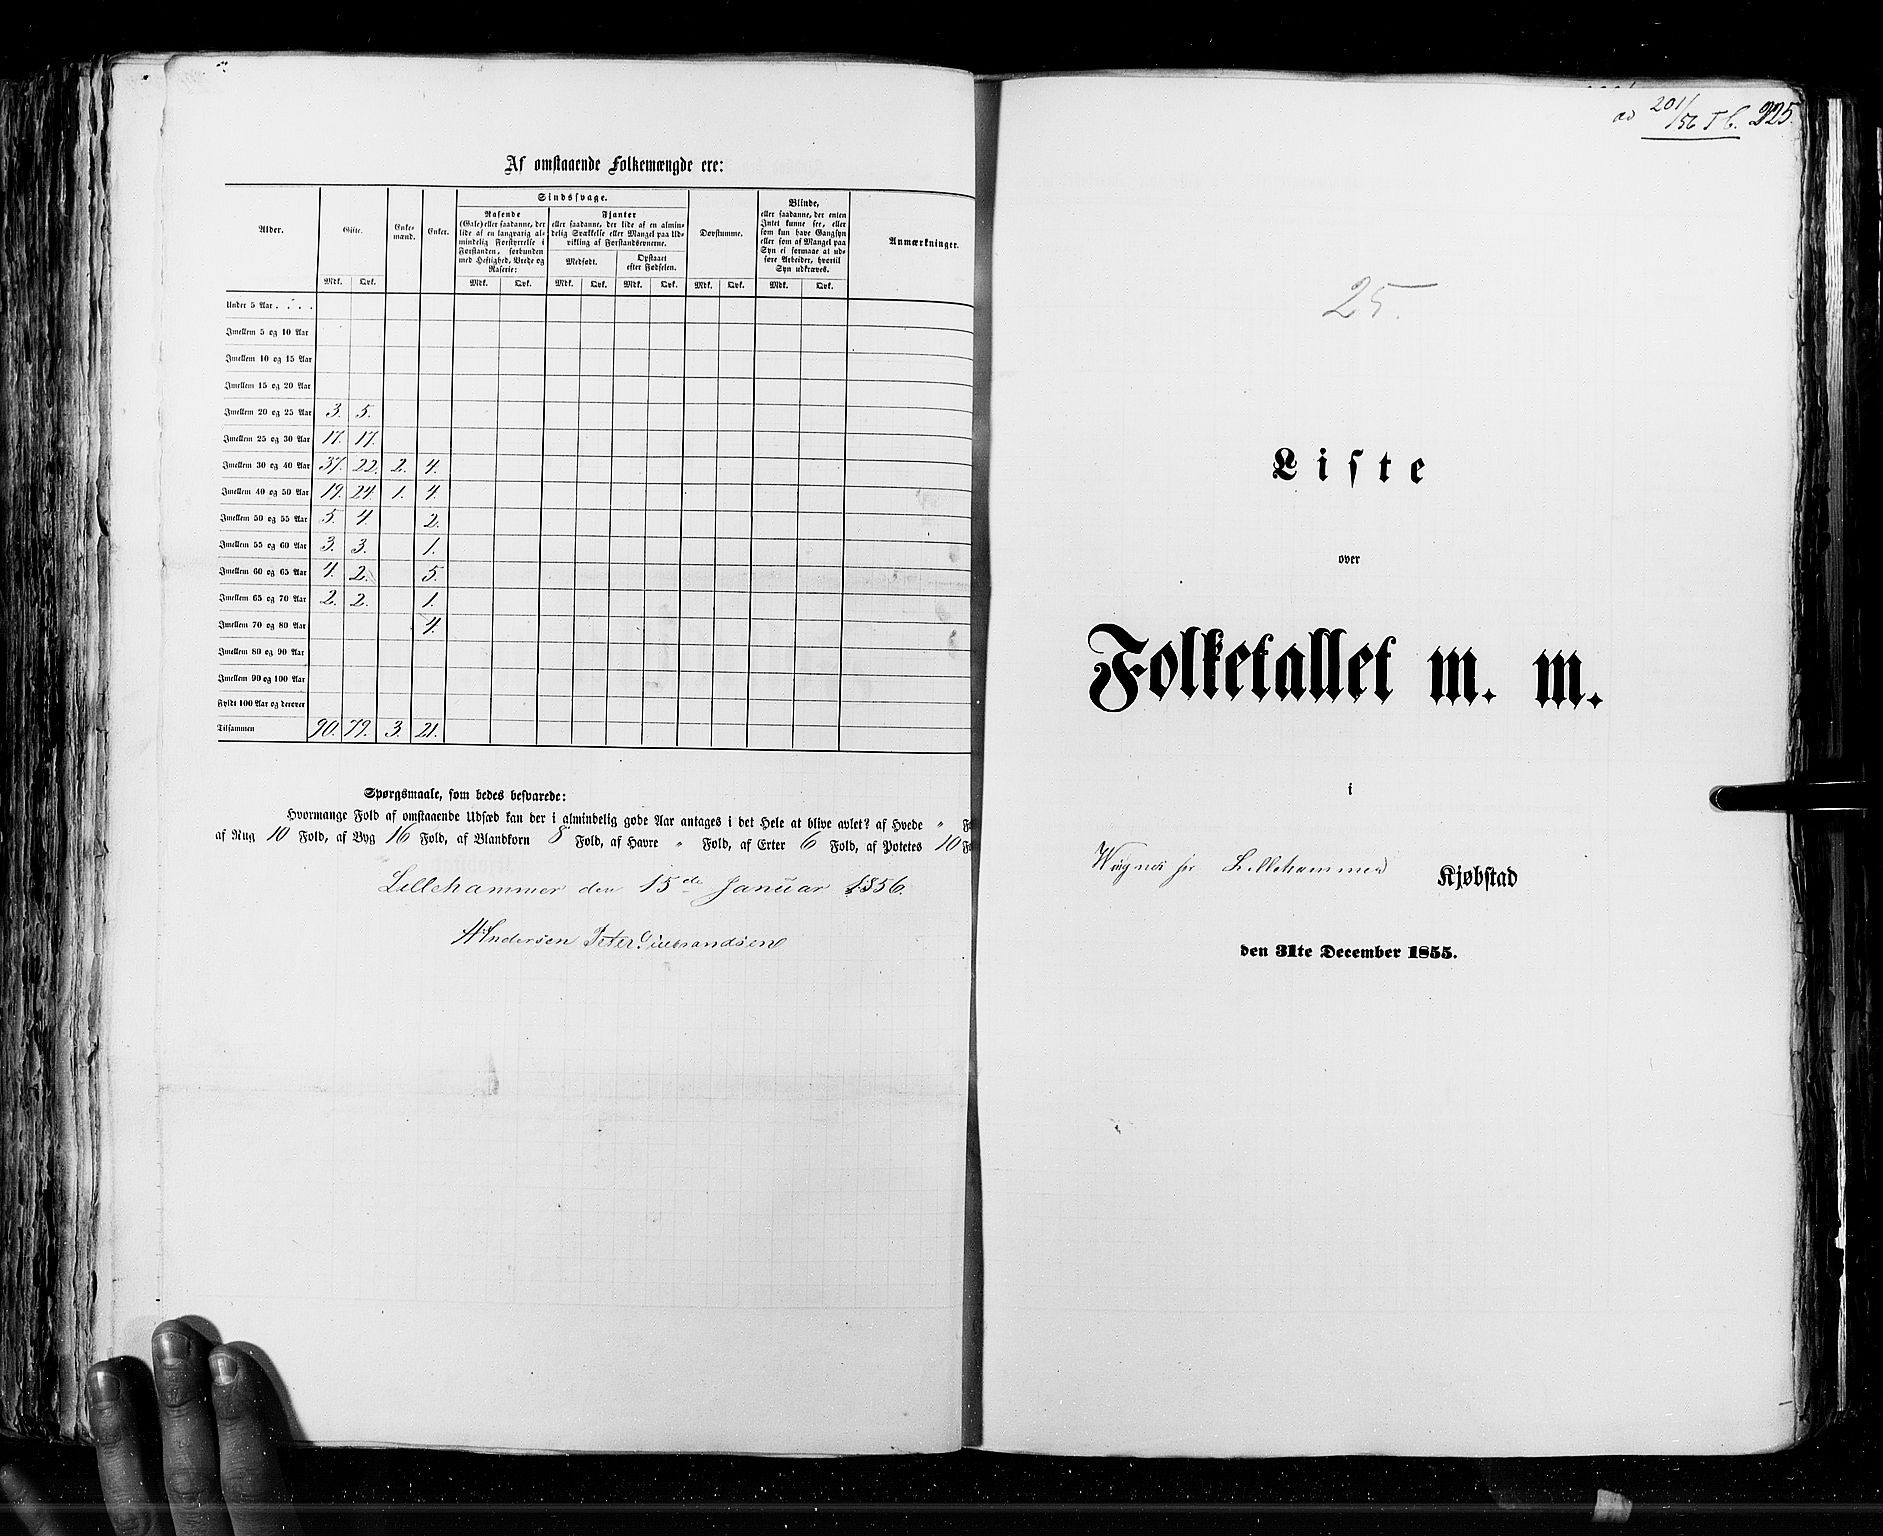 Af omstaaende Folkemængde ere:
Alder. Gifte. Enke-mænd. Enker. Sindssvage. Døvstumme. Blinde, Anmærkninger.
Rasende (Gale) eller saadanne, der lide af en langvarig almindelig Forstyrrelse i Forstanden, forbunden med Heftighed, Vrede og Raserie:
Fjanter eller saadanne, der lide af en almindelig Svækkelse eller Mangel paa Udvikling af Forstandsevnerne.
Medfødt. Opstaaet efter Fødselen.
eller saadanne, der enten Intet kunne see, eller som kun have Gangsyn eller som af Mangel paa Syn ei formaae at udføre Arbeider, hvortil Syn udkræves.
Mdk. Qvk. Mdk. Qvk. Mdk. Qvk. Mdk. Qvk. Mdk. Qvk. Mdk. Qvk.
Under 5 Aar . . . .
Imellem 5 og 10 Aar
Imellem 10 og 15 Aar
Imellem 15 og 20 Aar
Imellem 20 og 25 Aar 3. 5.
Imellem 25 og 30 Aar 17. 17.
Imellem 30 og 40 Aar 37. 22. 2. 4.
Imellem 40 og 50 Aar 19. 24. 1. 4.
Imellem 50 og 55 Aar 5. 4. 2.
Imellem 55 og 60 Aar 3. 3. 1.
Imellem 60 og 65 Aar 4. 2. 5.
Imellem 65 og 70 Aar 2. 2. 1.
Imellem 70 og 80 Aar 4.
Imellem 80 og 90 Aar
Imellem 90 og 100 Aar
Fyldt 100 Aar og derover
Tilsammen 90. 79. 3. 21.
Spørgsmaale, som bedes besvarede:
Hvormange Fold af omstaaende Udsæd kan der i almindelig gode Aar antages i det Hele at blive avlet? af Hvede "
af Rug 10 Fold, af Byg 16 Fold, af Blandkorn 8 Fold, af Havre " Fold, af Erter 6 Fold, af Potetes 10
Lillehammer den 15de Januar 1856.
Andersen Peter Gulbrandsen
201/56 225.
25.
Liste
over
Folketallet m. m.
i
Lillehammer Kjøbstad
den 31te December 1855.